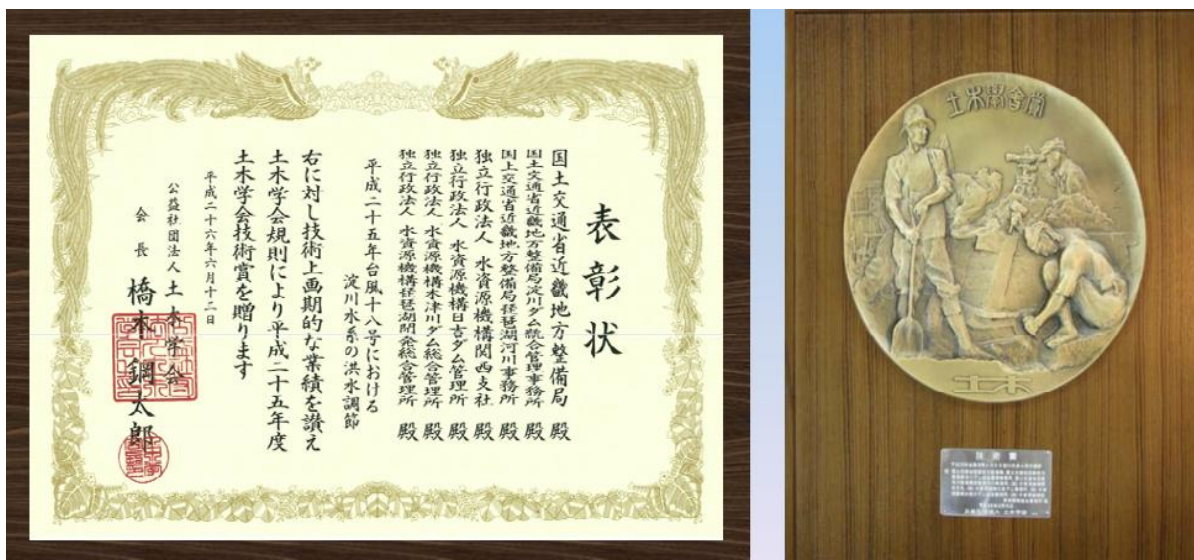 表彰状
国土交通省近畿地方整備局 殿
国土交通省近畿地方整備局淀川ダム統合管理事務所 殿
国土交通省近畿地方整備局琵琶湖河川事務所 殿
独立行政法人 水資源機構関西支社 殿
独立行政法人 水資源機構日吉ダム管理所 殿
独立行政法人 水資源機構木津川ダム総合管理所 殿
独立行政法人 水資源機構琵琶湖開発総合管理所 殿
平成二十五年台風十八号における
淀川水系の洪水調節
右に対し技術上画期的な業績を讃え
土木学会規則により平成二十五年度
土木学会技術賞を贈ります
平成二十六年六月十二日
公益社団法人土木学会
会長 橋本鋼太郎
土木學會賞
土木
技術賞
公益社団法人 土木学会